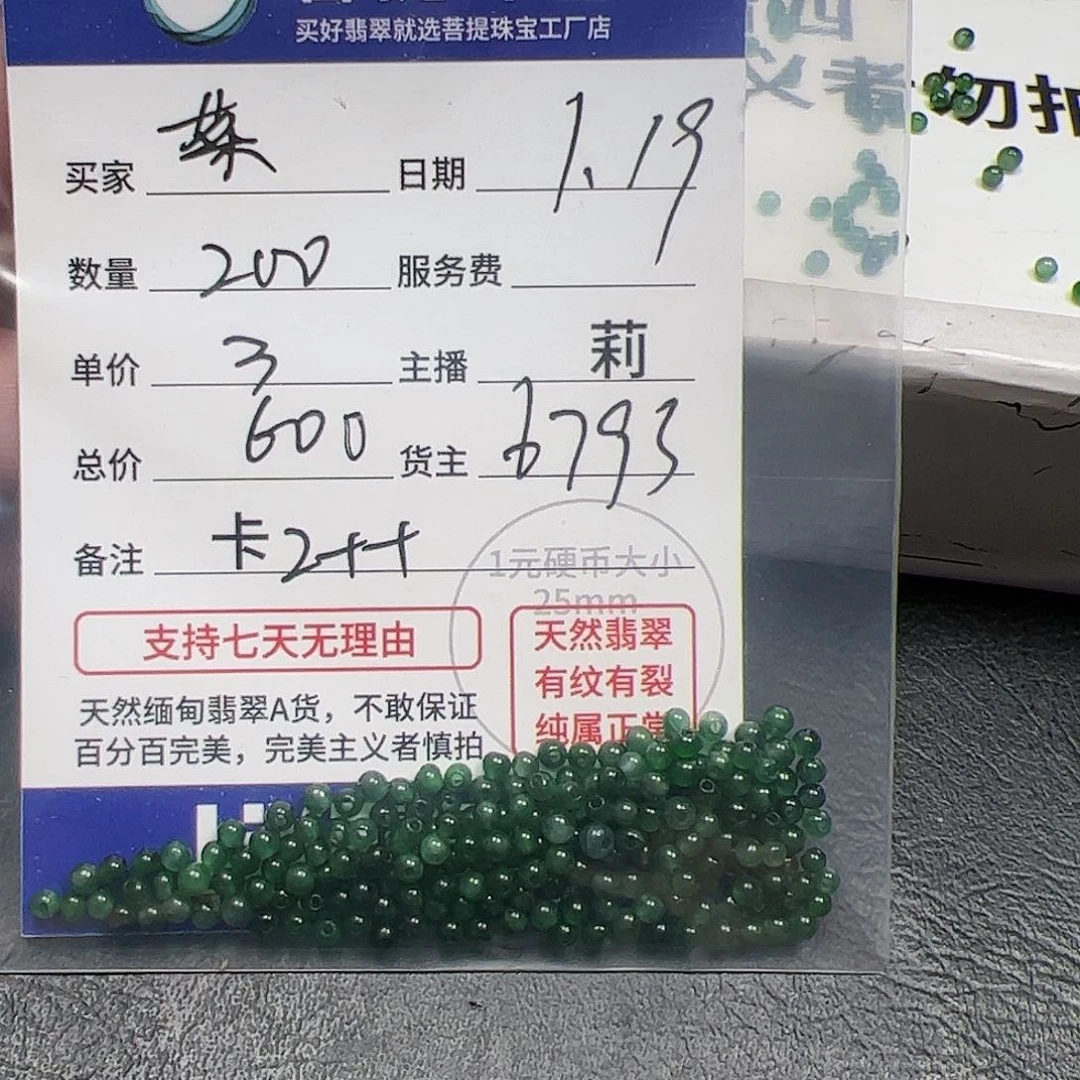 买好翡翠就选菩提珠宝工厂店
买家 日期 1.19
数量 200 服务费
单价 3 主播 莉
总价 600 货主 6793
备注 卡2++
1元硬币大小
25mm
支持七天无理由
天然翡翠
有纹有裂
纯属正常
天然缅甸翡翠A货，不敢保证
百分百完美，完美主义者慎拍
义者
勿拍